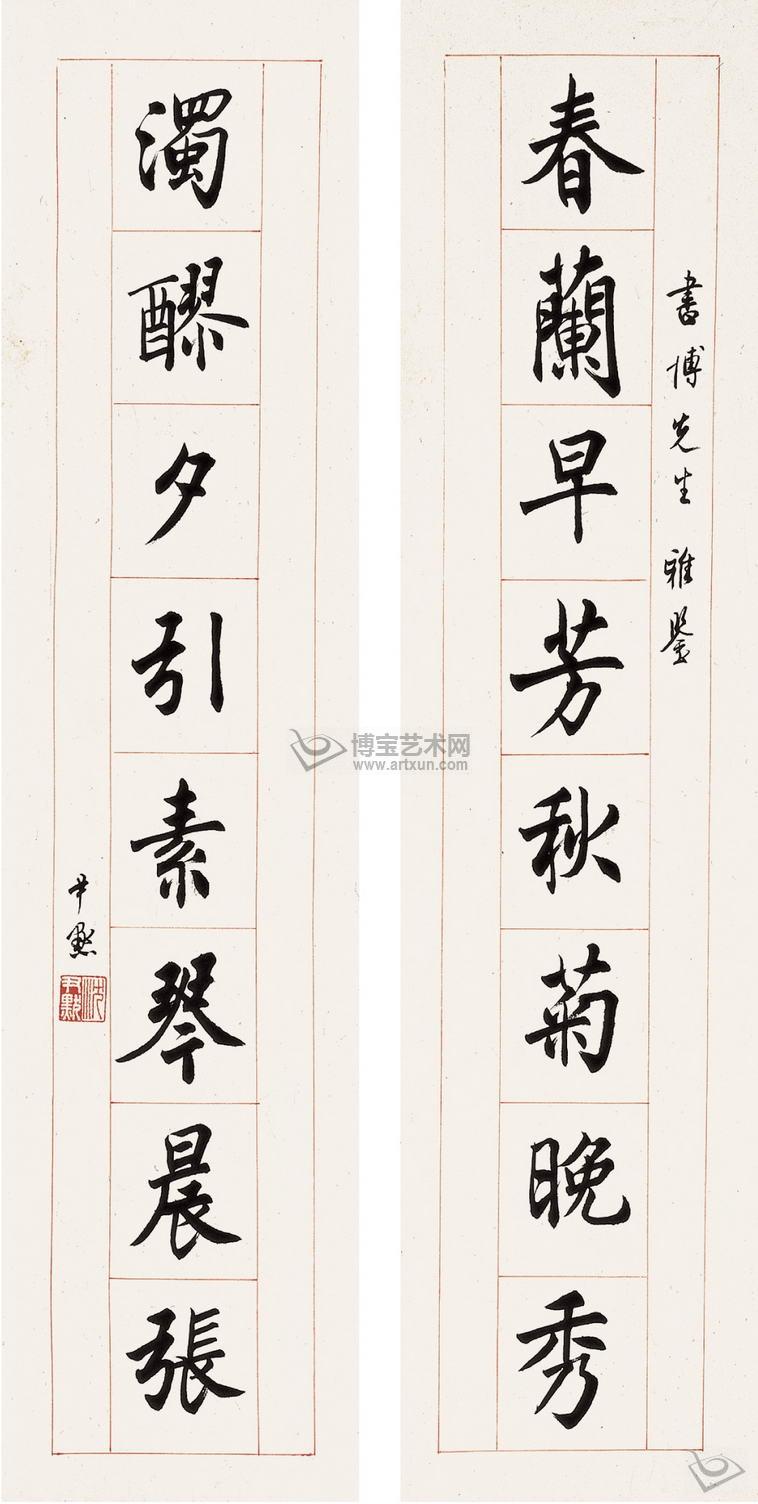 書博先生雅鑒
春蘭早芳秋菊晚秀
濁醪夕引素琴晨張
尹默
沈尹默
博宝艺术网
www.artxun.com